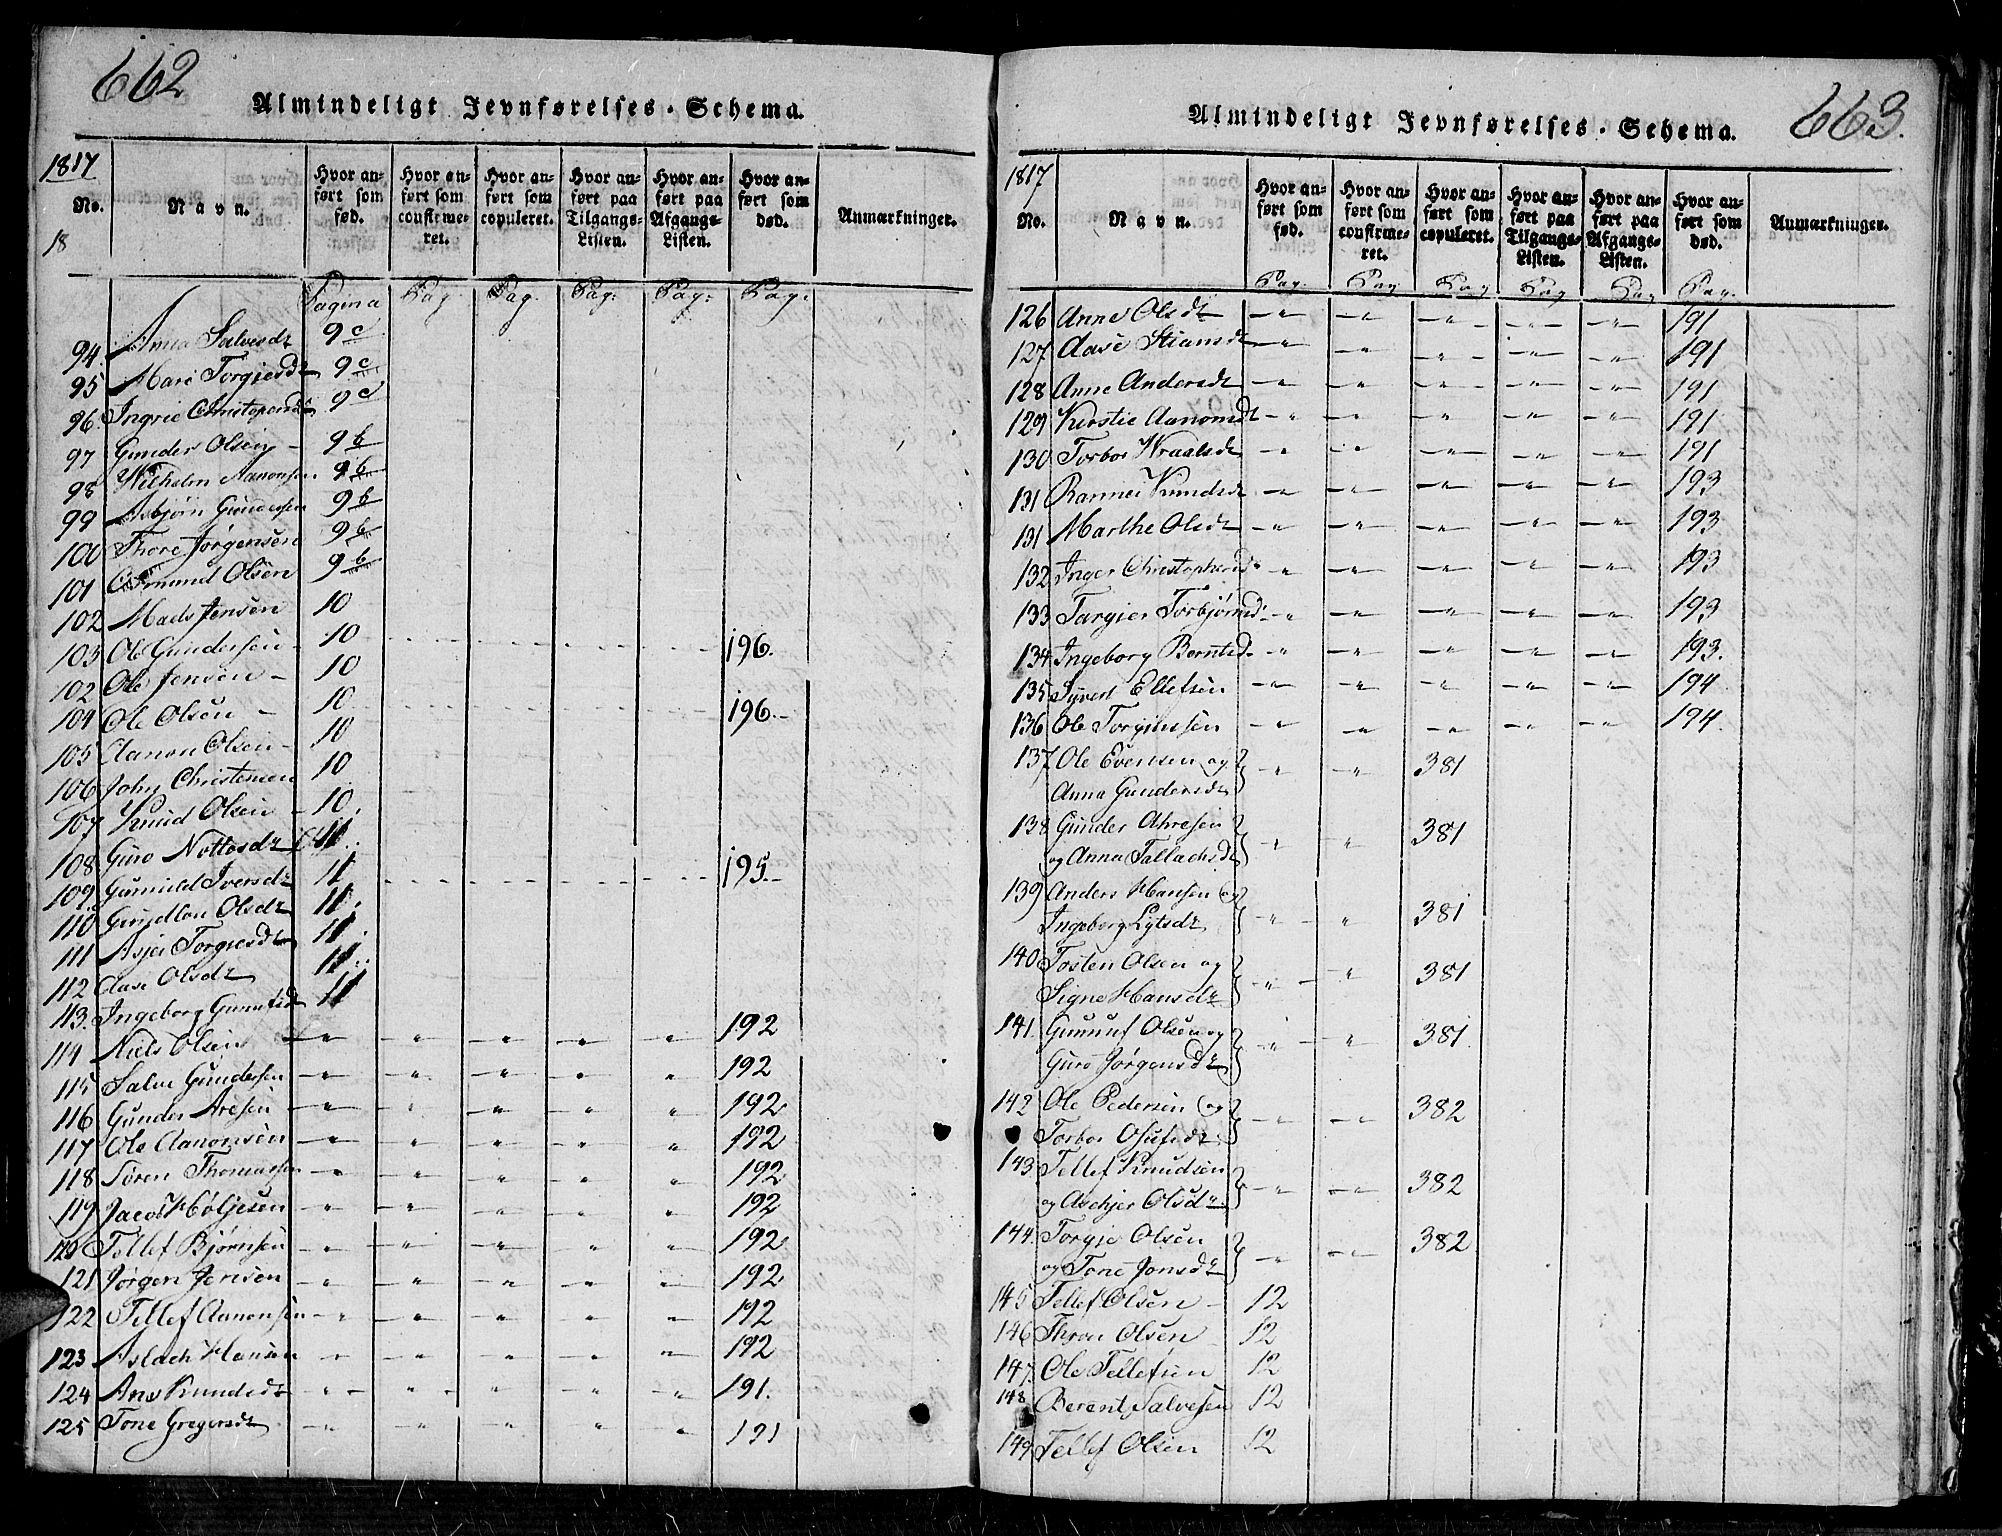 662
Almindeligt Jevnførelses-Schema.
1817
No.
18
Navn.
Hvor anført som fød.
Hvor anført som confirmeret.
Hvor anført som copuleret.
Hvor anført paa Tilgangs-Listen.
Hvor anført paa Afgangs-Listen.
Hvor anført som død.
Anmarkninger.
Pagina Pag. Pag. Pag: Pag: Pag:
94. Anna Salvesdr 9 c
95 Mari Torgiesdr 9 c
96. Ingrie Christopersdr 9 c
97 Gunder Olsen - 9 b
98 Wilhelm Aanonsen 9 b
99 Asbjørn Gundersen 9 b
100 Thore Jørgensen 9 b
101 Osmund Olsen 9 b
102 Mads Jensen 10
103 Ole Gundersen - 10 196.
102 Ole Jensen - 10
104 Ole Olsen - 10. 196.-
105 Aanon Olsen - 10
106 John Christensen 10
107 Knud Olsen - 10.
108 Guro Nottosdr 11.
109. Gunnild Iversdr 11 195.-
110 Olsdr 11.
111 Torgiesdr 11.
112 Aase Olsdr 11.
113. Ingeborg 11
114 Niels Olsen - " - " - " - " - " 192
115 Salve Gundersen - " - " - " - " - " 192
116 Gunder Aresen - " - " - " - " - " 192
117 Ole Aanonsen - " - " - " - " - " 192
118 Søren Thomassen - " - " - " - " - " 192
119 Jacob Høljesen - " - " - " - " - " 192
120 Tellef Bjørnsen - " - " - " - " - " 192
121 Jørgen Jensen - " - " - " - " - " 192
122 Tellef Aanonsen - " - " - " - " - " 192
123 Aslach Hansen - " - " - " - " - " 192
124 Ane Knudsdr - " - " - " - " - " 191.
125 Tone Gregersdr - " - " - " - " - " 191
663.
Almindeligt Jevnførelses-Schema.
1817
No.
Navn.
Hvor anført som fød.
Hvor anført som confirmeret.
Hvor anført som copuleret.
Hvor anført paa Tilgangs-Listen.
Hvor anført paa Afgangs-Listen.
Hvor anført som død.
Anmarkninger.
Pag. Pag Pag Pag Pag Pag.
126 Anne Olsdr - " - " - " - " - " 191
127 Aase Stiansdr - " - " - " - " - " 191
128 Anne Andersdr - " - " - " - " - " 191
129 Kirstie Aanonsdr - " - " - " - " - " 191
130 Torbor Wraalsdr - " - " - " - " - " 191
131 Rannei Knudsdr - " - " - " - " - " 193
131 Marthe Olsdr - " - " - " - " - " 193
132 Inger Christophersd. - " - " - " - " - " 193
133 Targier Torbjørnsd. - " - " - " - " - " 193
134 Ingeborg Berntsd. - " - " - " - " - " 193.
135 Syvert Ellefsen - " - " - " - " - " 194
136 Ole Torgiussen - " - " - " - " - " 194
137 Ole Evensen og
Anna Gundersdr - " - " 381
138 Gunder Ahresen
og Anna Tallachsdr - " - " 381
139 Anders Hansen og
Ingeborg - " - " 381
140 Tosten Olsen og
Signe Hansdr - " - " 381
141. Gunnuf Olsen og
Guro Jørgensdr - " - " 381
142 Ole Pedersen og
Torbor Osufsdr - " - " 382
143 Tellef Knudsen
og Aschjer Olsdr - " - " 382
144. Torgie Olsen
og Tone Jonsdr - " - " 382
145 Tellef Olsen - 12
146 Thron Olsen - 12
147. Ole Tellefsen 12
148 Berent Salvesen 12
149. Tellef Olsen 12